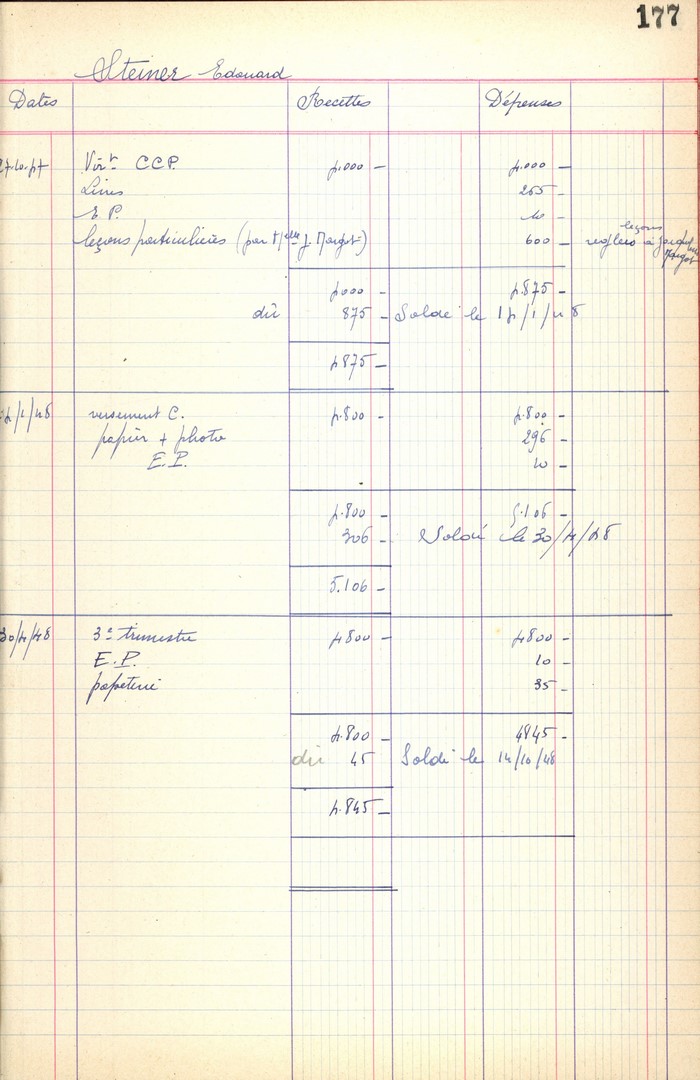 177
Steiner Edouard
Dates Recettes Dépenses
27.10.47 Virt CCP. 4.000 — 4.000 —
Livres 265 —
E.P. 10 —
leçons particulières (par Melle J. Margot) 600 — leçons
réglées à
Margot
4.000 4.875 —
dû 875 — Soldé le 14/1/48
4875 —
14/1/48 versement C. 4.800 — 4.800 —
papier + photo 296 —
E.P. 10 —
4.800 — 5.106 —
306 — Soldé le 30/4/48
5.106 —
30/4/48 3e trimestre 4800 — 4800 —
E.P. 10 —
papeterie 35 —
4.800 — 4845 —
dû 45 Soldé le 14/10/48
4.845 —